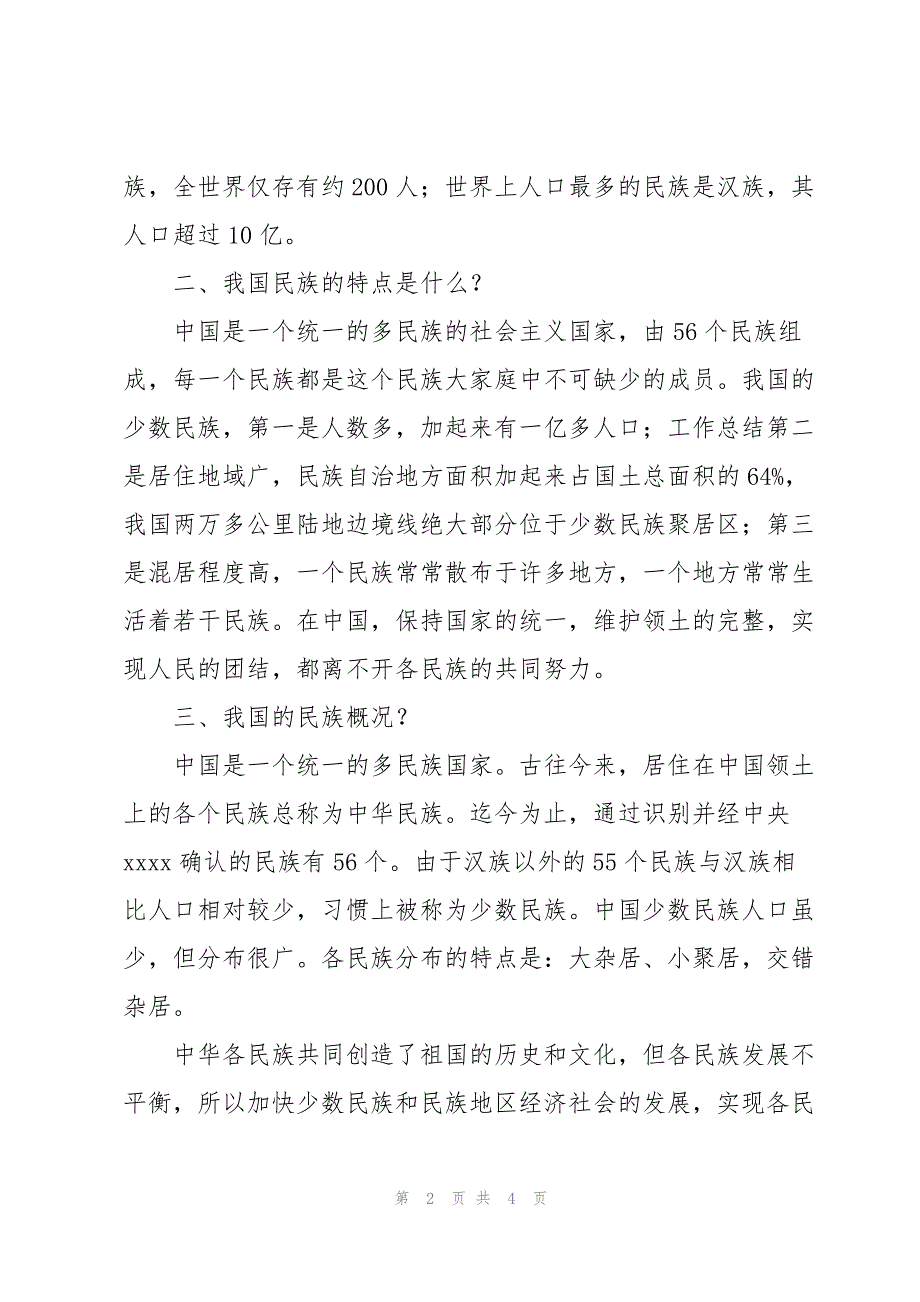 族，全世界仅存有约 200 人；世界上人口最多的民族是汉族，其
人口超过 10 亿。
二、我国民族的特点是什么？
中国是一个统一的多民族的社会主义国家，由 56 个民族组
成，每一个民族都是这个民族大家庭中不可缺少的成员。我国的
少数民族，第一是人数多，加起来有一亿多人口；工作总结第二
是居住地域广，民族自治地方面积加起来占国土总面积的 64%，
我国两万多公里陆地边境线绝大部分位于少数民族聚居区；第三
是混居程度高，一个民族常常散布于许多地方，一个地方常常生
活着若干民族。在中国，保持国家的统一，维护领土的完整，实
现人民的团结，都离不开各民族的共同努力。
三、我国的民族概况？
中国是一个统一的多民族国家。古往今来，居住在中国领土
上的各个民族总称为中华民族。迄今为止，通过识别并经中央
xxxx 确认的民族有 56 个。由于汉族以外的 55 个民族与汉族相
比人口相对较少，习惯上被称为少数民族。中国少数民族人口虽
少，但分布很广。各民族分布的特点是：大杂居、小聚居，交错
杂居。
中华各民族共同创造了祖国的历史和文化，但各民族发展不
平衡，所以加快少数民族和民族地区经济社会的发展，实现各民
第 2 页 共 4 页